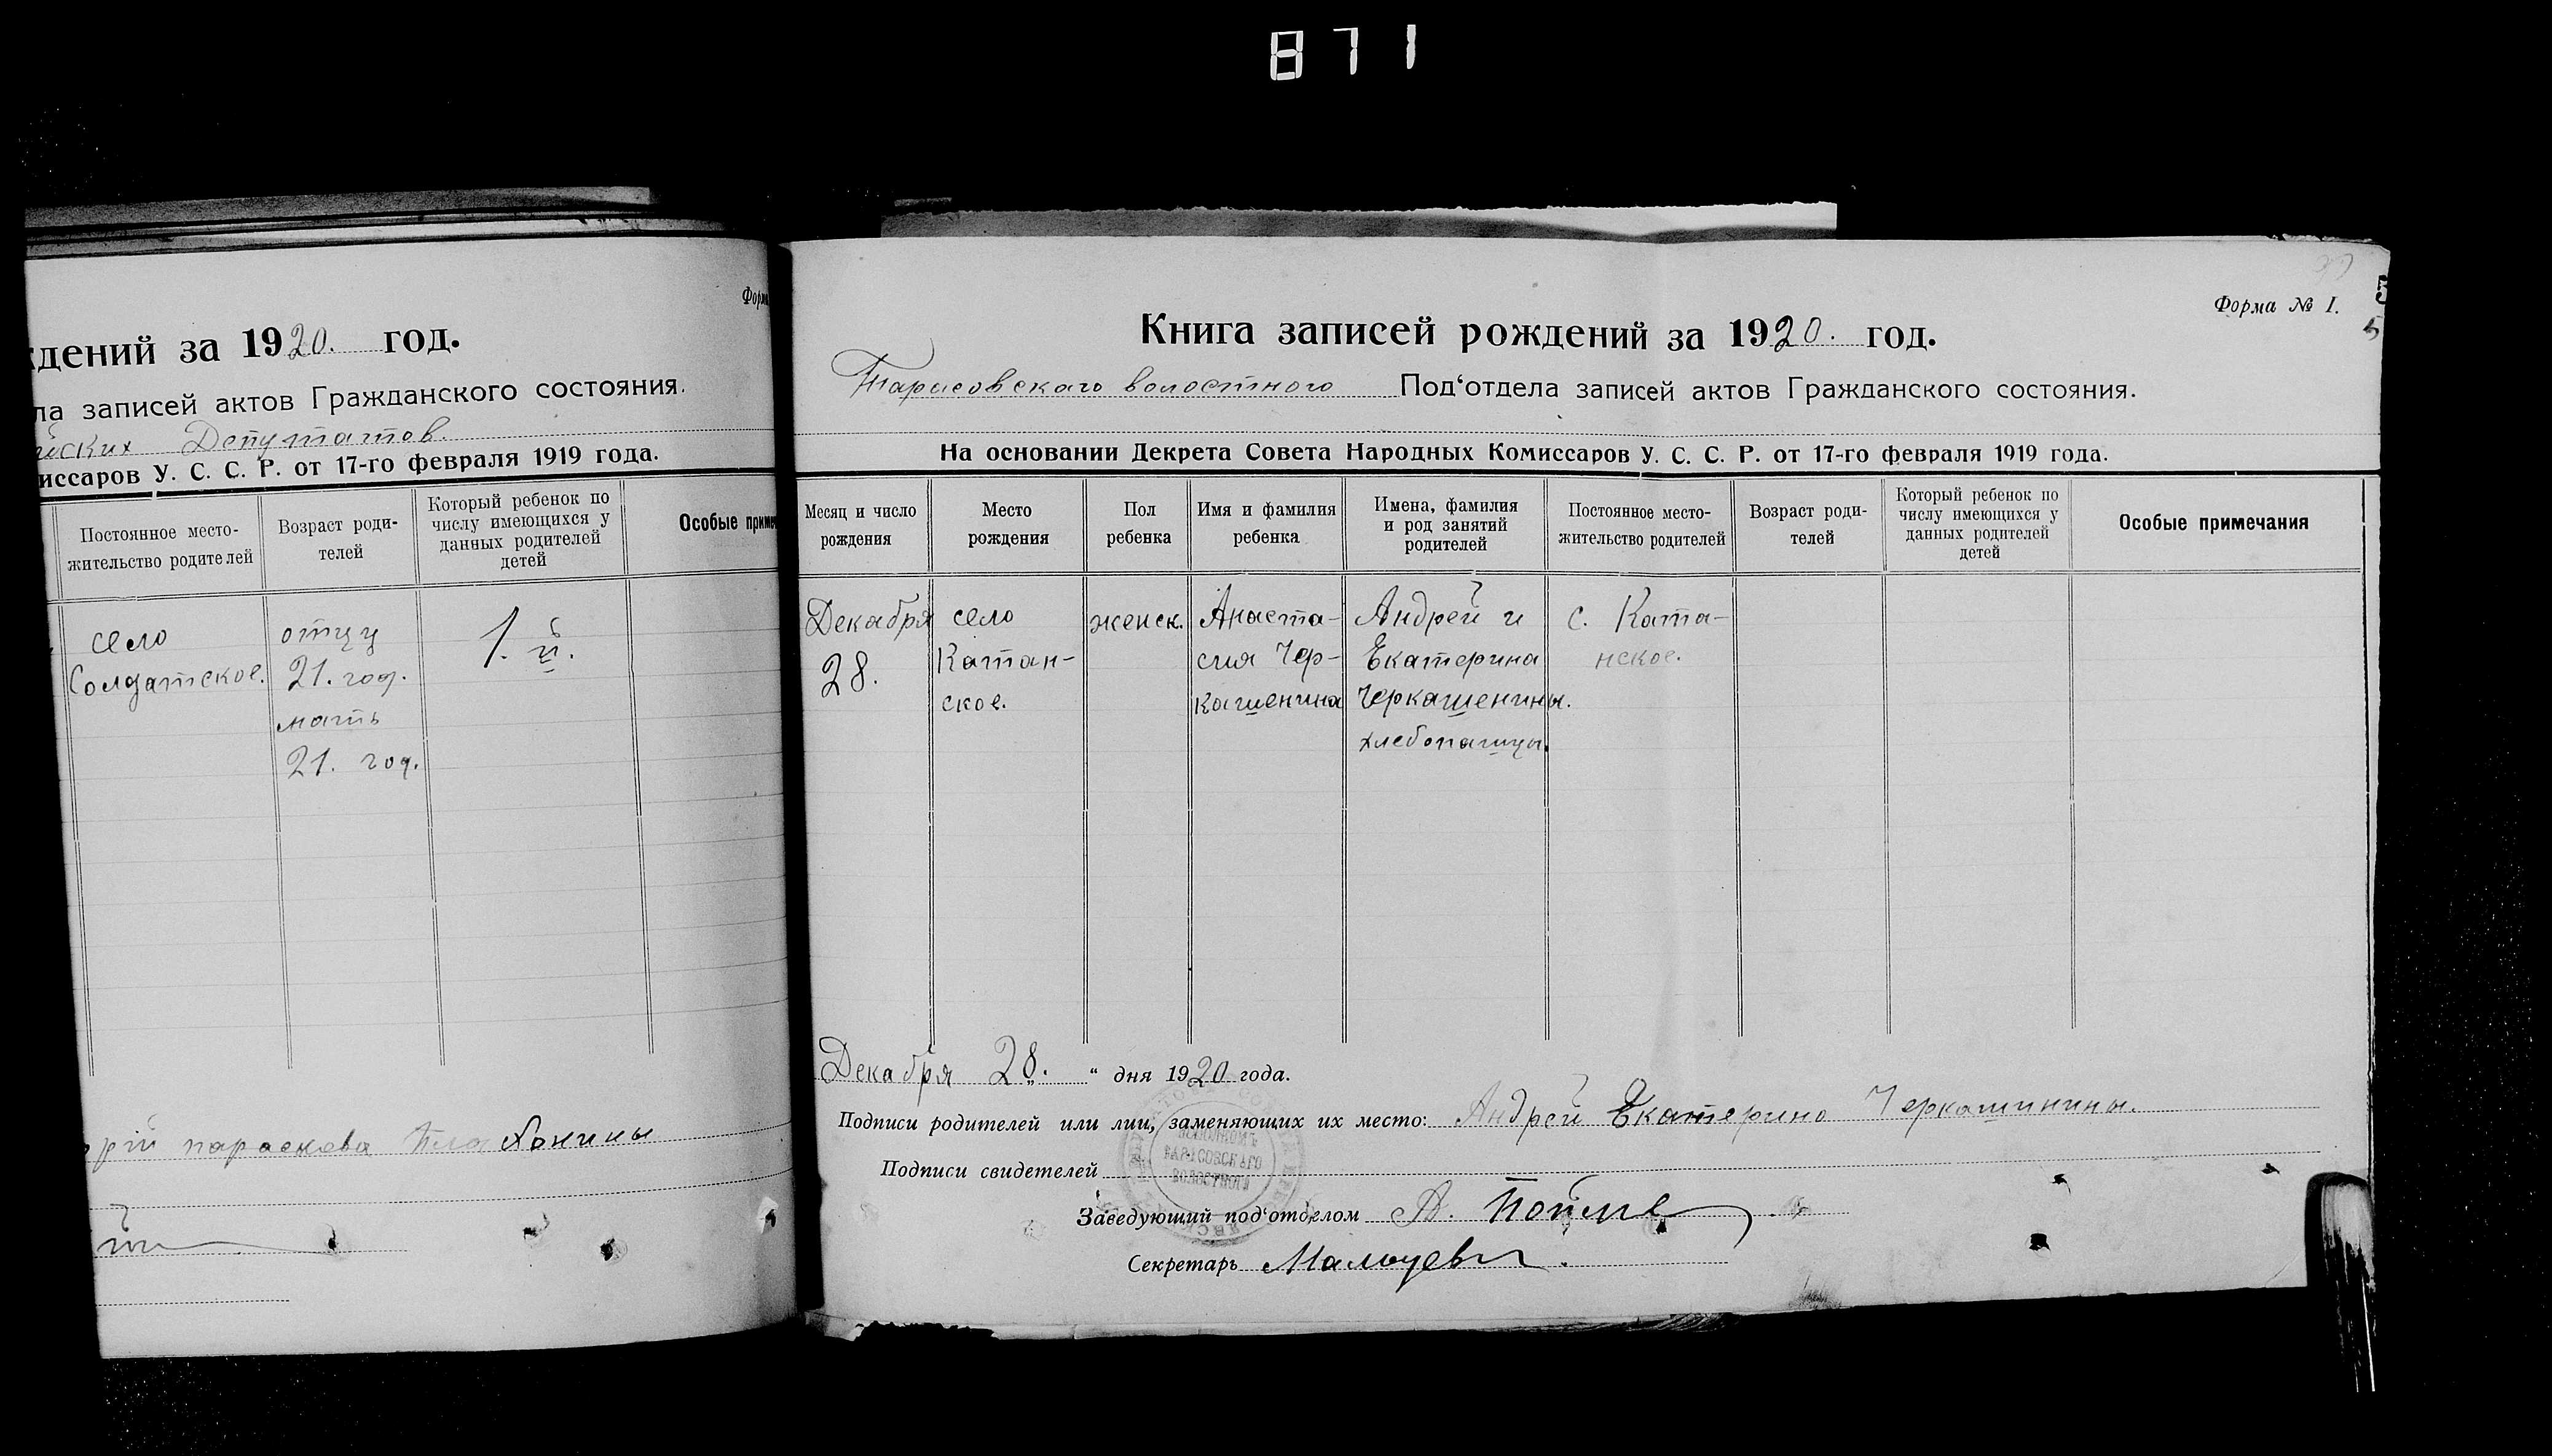 871
ждений за 1920. год.
ла записей актов Гражданского состояния.
Депутатов.
миссаров У. С. С. Р. от 17-го февраля 1919 года.
Постоянное место-
жительство родителей
Возраст роди-
телей
Который ребенок по
числу имеющихся у
данных родителей
детей
Особые примеч
село
Солдатское.
отцу
21. год.
мать
21. год.
1. й.
параскева
Форма № I.
Книга записей рождений за 1920. год.
Тарасовскаго волостного Под'отдела записей актов Гражданского состояния.
На основании Декрета Совета Народных Комиссаров У. С. С. Р. от 17-го февраля 1919 года.
Месяц и число
рождения
Место
рождения
Пол
ребенка
Имя и фамилия
ребенка
Имена, фамилия
и род занятий
родителей
Постоянное место-
жительство родителей
Возраст роди-
телей
Который ребенок по
числу имеющихся у
данных родителей
детей
Особые примечания
Декабря
28.
село
Катан-
ское.
женск.
Анаста-
сия Чер-
кашенина
Андрей и
Екатерина
Черкашенины.
хлебопашцы.
с. Ката-
нское.
Декабря 28. " дня 1920 года.
Подписи родителей или лиц, заменяющих их место: Андрей Екатерино Черкашинины.
Подписи свидетелей
Заведующий под'отделом А.
Секретарь Мальцевъ